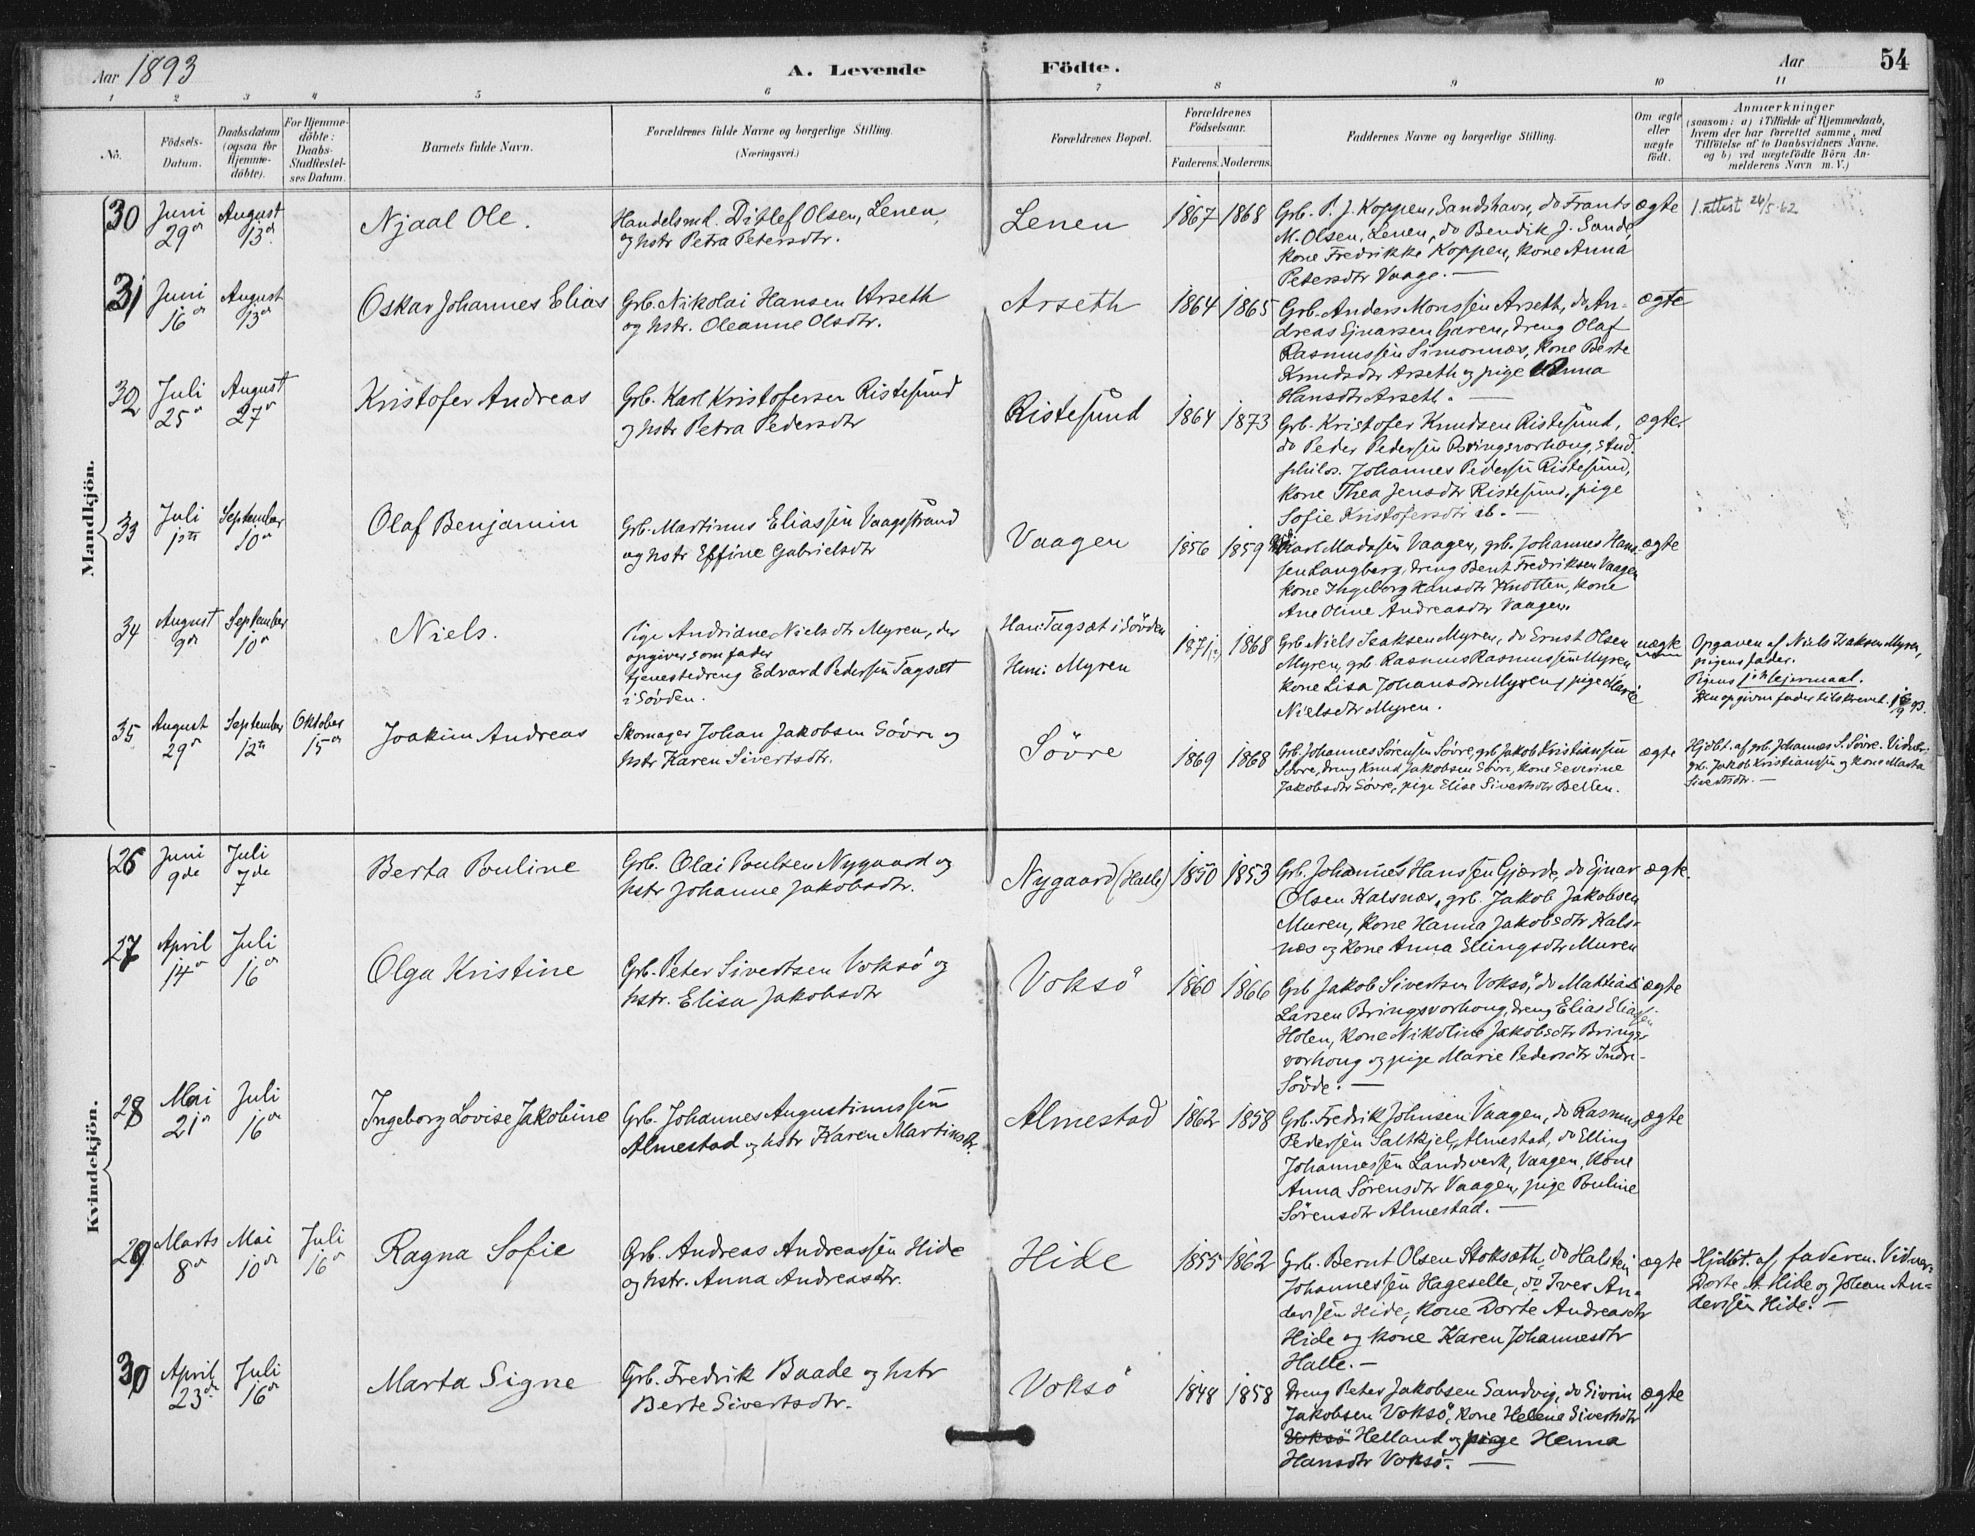 Aar 1893
A. Levende
Födte.
Aar
54
1 2 3 4 5 6 7 8 9 10 11
No.
Födsels-
Datum.
Daabsdatum
(ogsaa for
Hjemme-
döbte).
For Hjemme-
döbte:
Daabs-
Stadfæstel-
ses Datum.
Barnets fulde Navn.
Forældrenes fulde Navne og borgerlige Stilling.
(Næringsvei.)
Forældrenes Bopæl.
Forældrenes
Födselsaar.
Faderens. Moderens.
Faddernes Navne og borgerlige Stilling.
Om ægte
eller
uægte
födt.
Anmærkninger
(saasom: a) i Tilfælde af Hjemmedaab,
hvem der har forrettet samme, med
Tilföielse af to Daabsvidners Navne,
og b) ved uægtefödte Börn An-
melderens Navn m. V.)
Mandkjön.
30
Juni
29de
August
13de
Njaal Ole.
Handelsmd. Ditlef Olsen, Lenen,
og hstr Petra Petersdtr.
Lenen
1867 1868
Grb. P. J. Koppen, Sandshavn, do Frants
M. Olsen, Lenen, do Bendik J. Sande,
kone Fredrikke Koppen, kone Anna
Petersdtr Vaage. —
ægte
1. attest 24/5-62
31
Juni
16de
August
13de
Oskar Johannes Elias
Grb. Nikolai Hansen Arseth
og hstr. Oleanne Olsdtr.
Arseth
1864 1865
Grb. Anders Monssen Arseth, do An-
dreas Ejnarsen Garen, dreng Olaf
Rasmussen Simonnæs, kone Berte
Knudsdtr Arseth og pige Anna
Hansdtr Arseth. —
ægte
32
Juli
25de
August
27de
Kristofer Andreas
Grb. Karl Kristofersen Ristesund
og hstr Petra Pedersdtr
Ristesund
1864 1873
Grb. Kristofer Knudsen Ristesund,
do Peder Pedersen Bringsvorhoug, stud.
philos. Johannes Pedersen Ristesund,
kone Thea Jensdtr Ristesund, pige
Sofie Kristofersdtr ib. —
ægte
33
Juli
1ste
September
10de
Olaf Benjamin
Grb. Martinus Eliassen Vaagsstrand
og hstr Effine Gabrielsdtr
Vaagen
1856 1859
Karl Madssen Vaagen, grb. Johannes Hans-
sen Langberg, dreng Bent Fredriksen Vaagen
kone Ingeborg Hansdtr Knotten, kone
Ane Oline Andreasdtr Vaagen.
ægte
34
August
9de
September
10de
Niels.
Pige Andriane Nielsdtr Myren, der
opgiver som fader
tjenestedreng Edvard Pedersen Tagsæt
i Søvden.
Han: Tagsæt i Søvden
Hun: Myren
1871 1868
Grb Niels Isaksen Myren, do Ernst Olsen
Myren, grb Rasmus Rasmussen Myren
kone Lisa Johansdtr Myren, pige Marie
Nielsdtr Myren.
uægte
Opgaven af Niels Isaksen Myren,
pigens fader.
Pigens 1ste lejermaal.
Den opgivne fader tilskrevet
35
August
29de
September
12te
Oktober
15de
Joakim Andreas
Skomager Johan Jakobsen Søvre og
hstr Karen Sivertsdtr.
Søvre
1869 1868
Grb. Johannes Sørensen Søvre, grb Jakob Kristiansen
Søvre, dreng Knud Jakobsen Søvre, kone Severine
Jakobsdtr Søvre, pige Elise Sivertsdtr Betten.
ægte
Hjdbt. af grb. Johannes S. Søvre. Vidner:
grb. Jakob Kristianssen og kone Marta
Sivertsdtr. —
Kvindekjön.
26
Juni
9de
Juli
7de
Berta Pouline
Grb. Olai Poulsen Nygaard og
hstr Johanne Jakobsdtr.
Nygaard (Halle)
1850 1853
Grb. Johannes Hanssen Gjærde, do Ejnar
Olsen Kalsnæs, grb. Jakob Jakobsen
Muren, kone Hanna Jakobsdtr Kals-
næs og kone Anna Ellingsdtr Muren
ægte.
27
April
14de
Juli
16de
Olga Kristine
Grb. Peter Sivertsen Voksö og
hstr. Elisa Jakobsdtr
Voksö
1860 1866
Grb Jakob Sivertsen Voksö, do Mattias
Larsen Bringsvorhoug, dreng Elias Eliassen
Holen, kone Nikoline Jakobsdtr Brings-
vorhoug og pige Marie Pedersdtr Indre-
Søvde. —
ægte
28
Mai
21de
Juli
16de
Ingeborg Lovise Jakobine
Grb. Johannes Augustinussen
Almestad og hstr Karen Martinsdtr.
Almestad
1862 1858
Grb. Fredrik Johnsen Vaagen, do Rasmus
Pedersen Saltkjel, Almestad, do Elling
Johannessen Landsverk, Vaagen, kone
Anna Sørensdtr Vaagen, pige Pouline
Sørensdtr Almestad. —
ægte
29
Marts
8de
Mai
10de
Juli
16de
Ragna Sofie
Grb. Andreas Andreassen Hide
og hstr. Anna Andreasdtr.
Hide
1855 1862
Grb. Bernt Olsen Stoksæth, do Halstein
Johannessen Hageselle, do Iver An-
derssen Hide, kone Dorte Andreasdtr
Hide og kone Karen Johannesdtr
Halle. —
ægte
Hjdbt. af faderen. Vidner:
Dorte A. Hide og Johan An-
derssen Hide. —
30
April
23de
Juli
16de
Marta Signe
Grb. Fredrik Baade og hstr
Berte Sivertsdtr.
Voksö
1848 1858
Dreng Peter Jakobsen Sandvig, do Sivrin
Jakobsen Voksö, kone Helene Sivertsdtr
Voksö Helland og pige Henna
Hansdtr Voksö. —
ægte